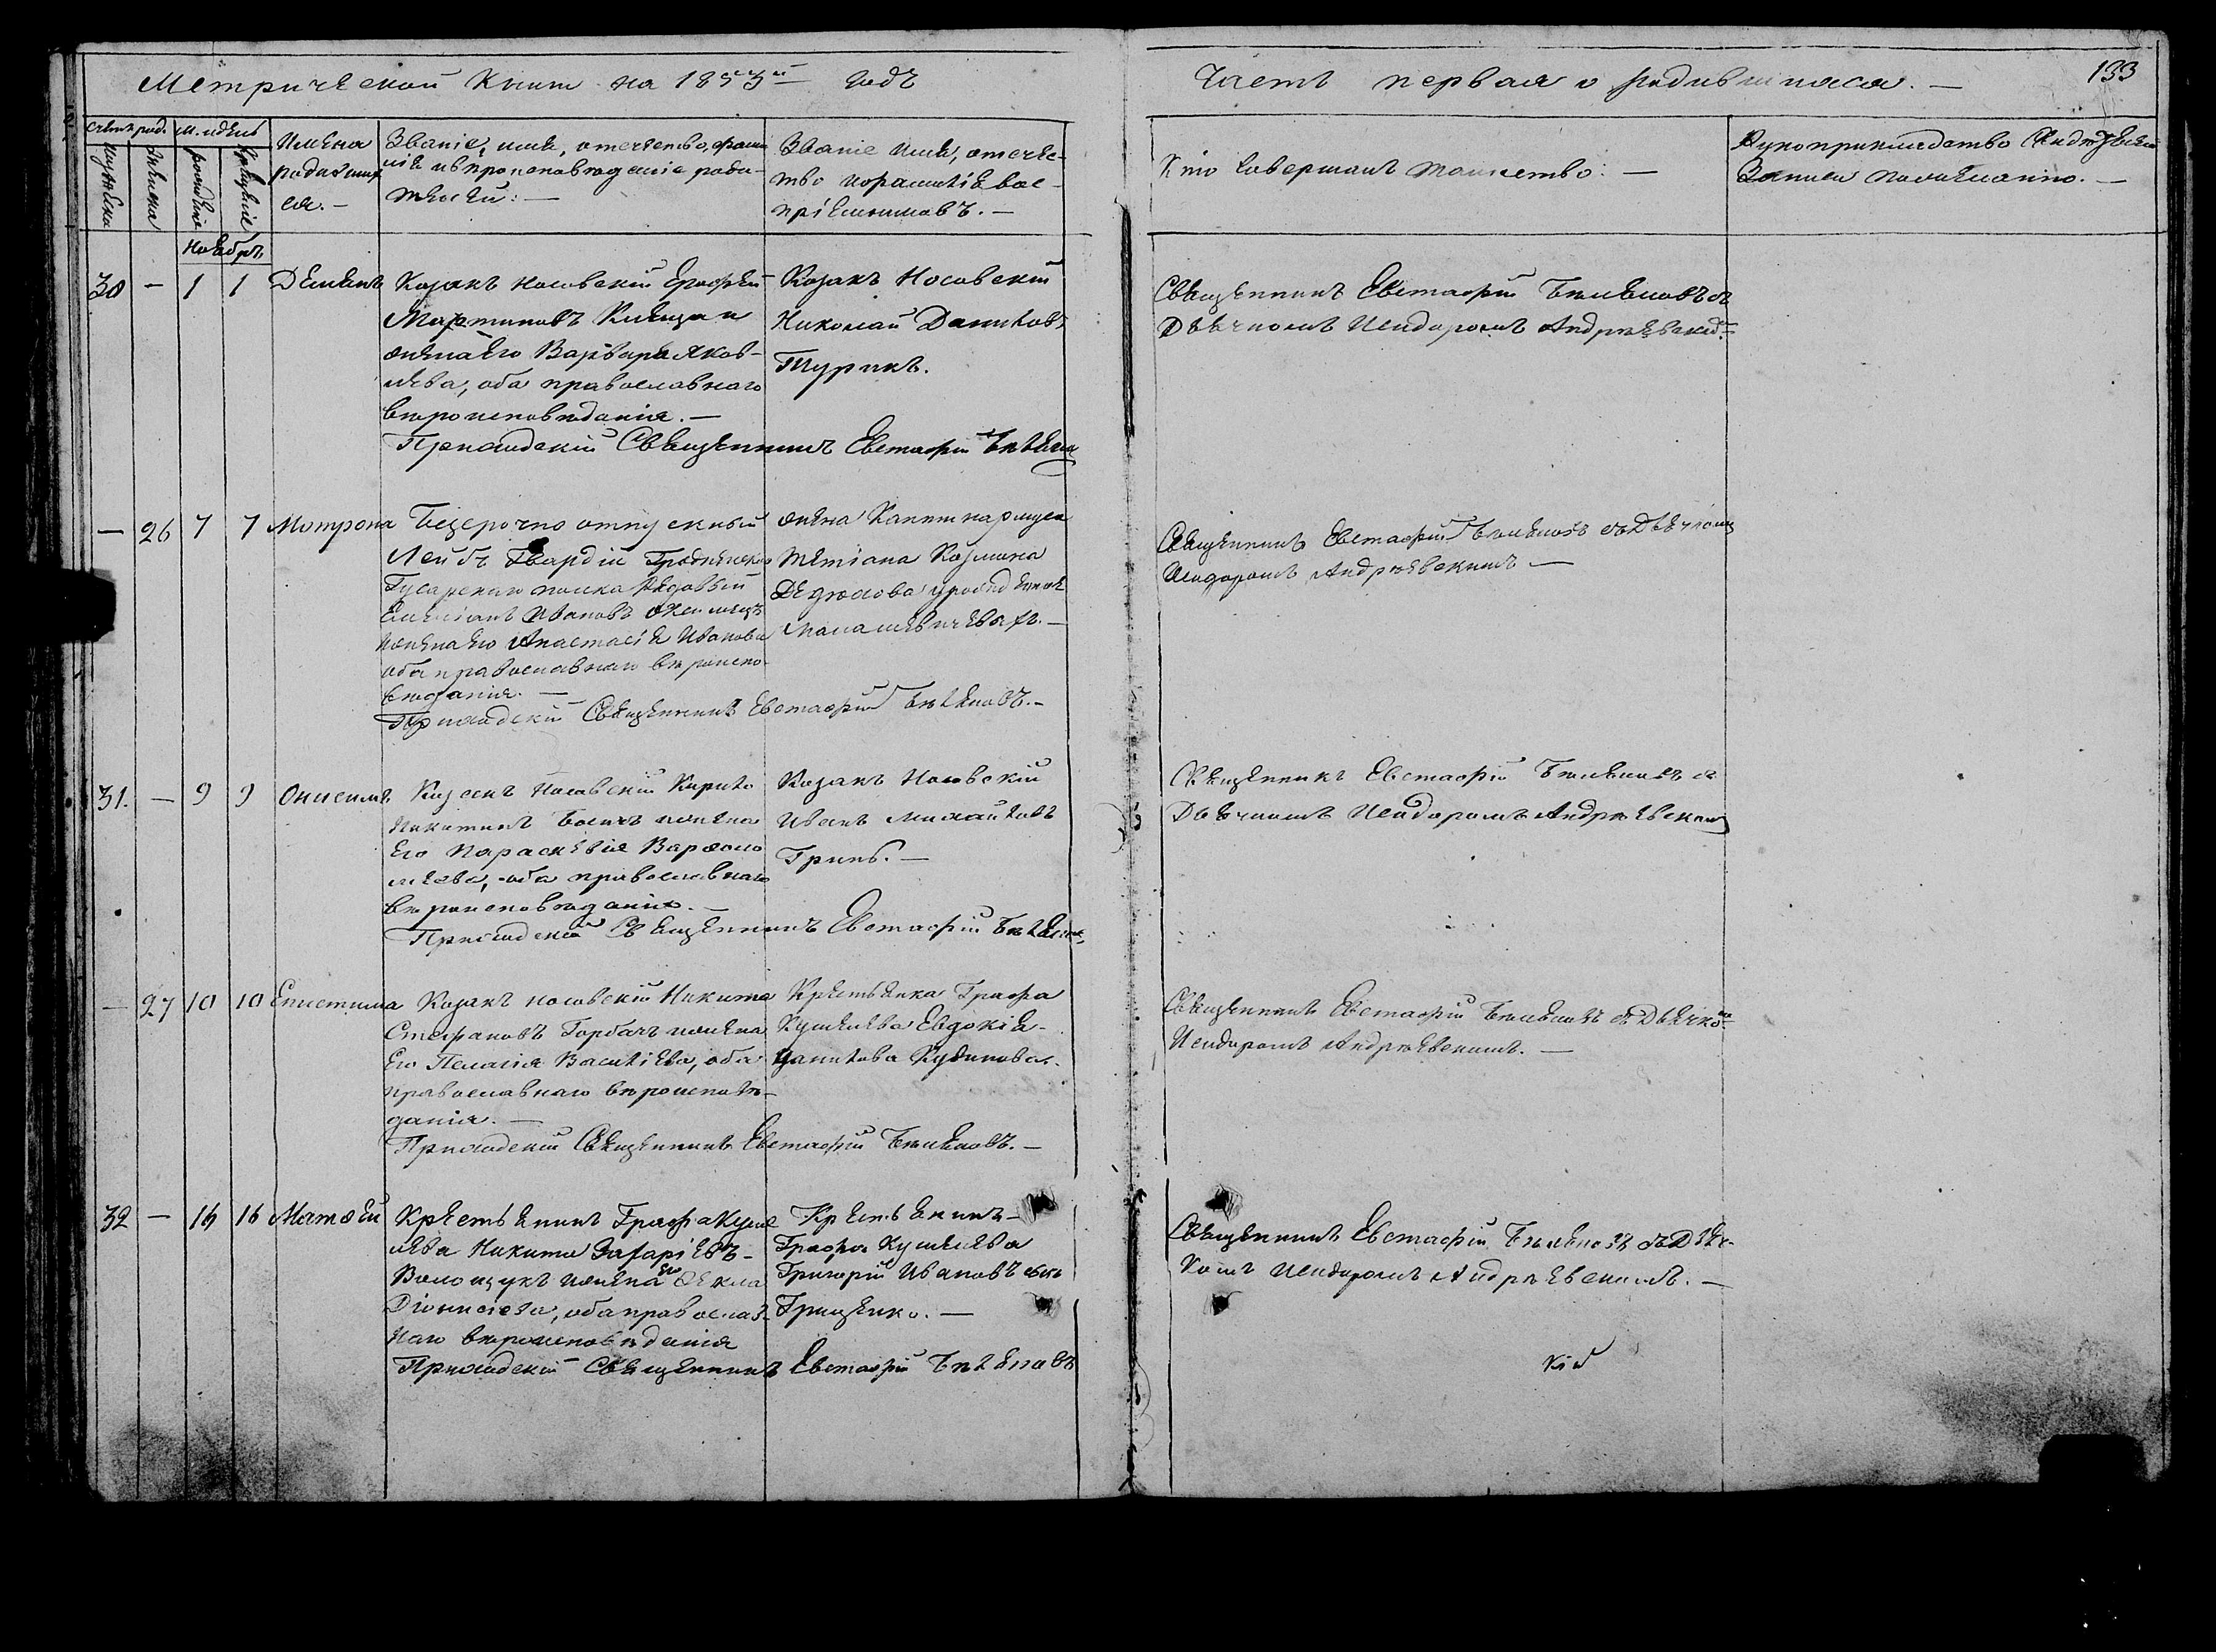 Метрической Книги на 1853й годъ
Часть первая о родившихся. —
133
счетъ род.
м. и день
мужеска
женска
рожденiе
крещенiе
Имена
родивших
ся. —
Званiе, имя, отечество, фами
лiя и вѣроисповѣданiе роди-
телей: —
Званiе имя, отечес-
тво и фамилiя вос-
прiемниковъ. —
Кто совершалъ таинство: —
Рукоприкладство свидѣтелей
Записи по желанию. —
Ноябрь
30 — 1 1 Демянъ
Козакъ Носовскiй Ерофей
Мартиновъ Клещъ и
жена его Варвара Яков-
лева, оба православнаго
вѣроисповѣданiя. —
Приходскiй Священникъ Евстафiй Бѣлено
Козакъ Носовскiй
Николай Даниловъ
Турикъ.
Священникъ Евстафiй Бѣленовъ съ
Дьячкомъ Исидоромъ Андрѣевски
— 26 7 7 Мотрона
Безсрочно отпускный
Лейбъ Гвардiи Гродненскаго
Гусарскаго полка Рядовый
Емелiанъ Ивановъ
и жена его Анастасiя Иванова
оба православнаго вѣроиспо-
вѣданiя. —
Приходскiй Священникъ Евстафiй Бѣленовъ. —
жена Капитнармуса
Тетiана Козмина
урожденная
Священникъ Евстафiй Бѣленовъ съ Дьячкомъ
Исидоромъ Андрѣевскимъ —
31. — 9 9 Онисимъ
Козакъ Носовскiй Кирило
Никитинъ и жена
его Параскевiя Варѳоло
меева, оба православнаго
вѣроисповѣданiя. —
Приходскiй Священникъ Евстафiй Бѣлено
Козакъ Носовскiй
Иванъ Михайловъ
Грипъ. —
Священникъ Евстафiй Бѣленовъ съ
Дьячкомъ Исидоромъ Андрѣевским
— 27 10 10 Епистима
Козакъ Носовскiй Никита
Стефановъ Горбачъ и жена
его Пелагiя Василiева, оба
православнаго вѣроисповѣ-
данiя. —
Приходскiй Священникъ Евстафiй Бѣленовъ. —
Крестьянка Графа
Кушелева Евдокiя
Данилова Кудинова.
Священникъ Евстафiй Бѣленовъ съ Дьячко
Исидоромъ Андрѣевскимъ. —
32 — 16 16 Матѳей
Крестьянинъ Графа Куше
лева Никита Захарiевъ
Волощукъ и жена его Ѳекла
Дiонисiева, оба православ-
наго вѣроисповѣданiя
Приходскiй Священникъ Евстафiй Бѣленовъ
Крестьянинъ
Графа Кушелева
Григорiй Ивановъ сынъ
Грищенко. —
Священникъ Евстафiй Бѣленовъ съ Дьяч-
комъ Исидоромъ Андрѣевскимъ. —
кiй